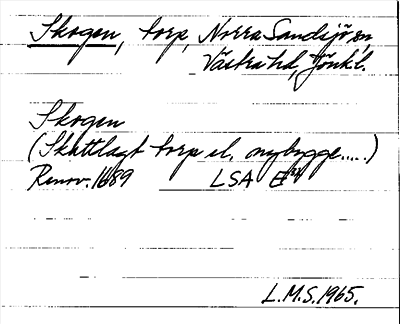 Skogen, torp, Norra Sandsjö sn,
Västra hd, Jönk.l.
Skogen
(Skattlagt torp el. nybygge.....)
Renov. 1689 LSA
L.M.S. 1965.